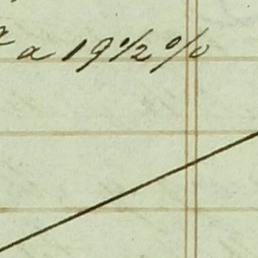 a 19 1/2 %